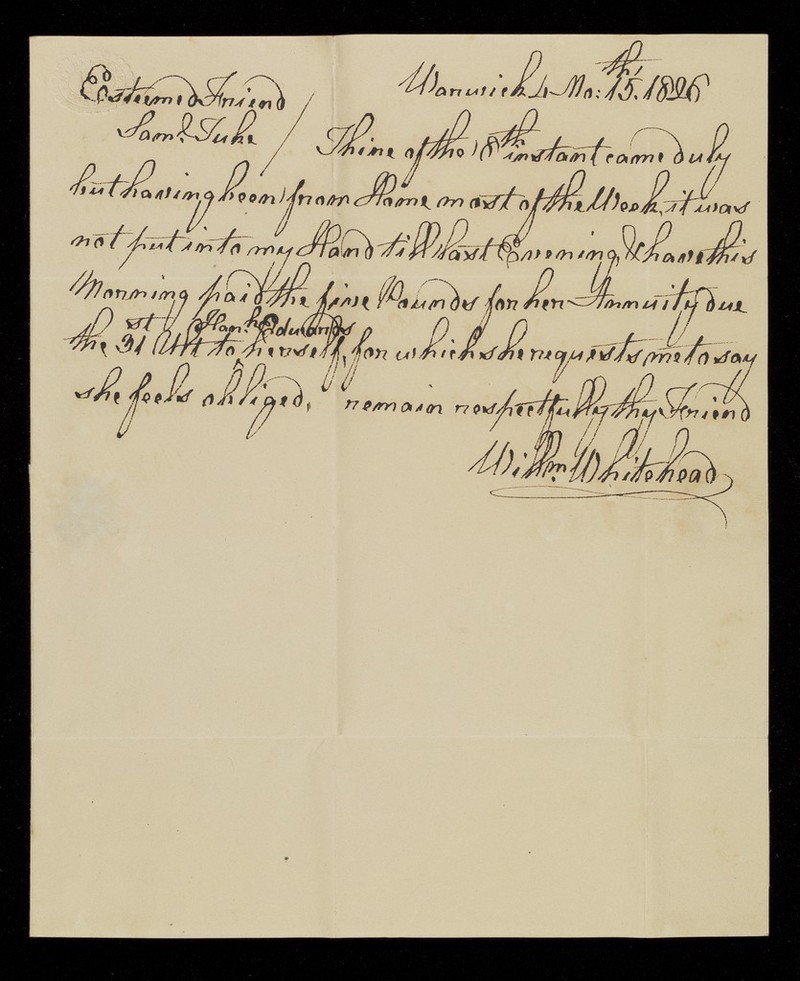 Esteemed Friend Warwick 4 Mo: 15th, 1826
Saml. Tuke / Thine of the 8th instant came duly
but having been from Home most of the Week, it was
not put into my Hand till last Evening, & have this
Morning paid the five Pounds for her Annuity due
the 31st Ult to Hanh. Edwards herself, for which she requests me to say
she feels obliged, remain respectfully thy Friend
Willm. Whitehead